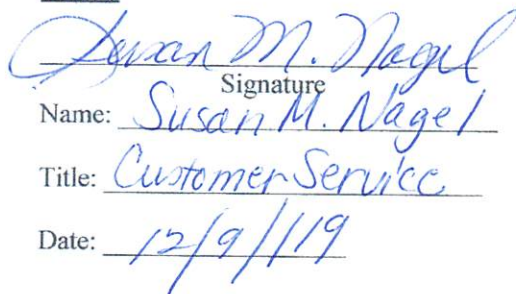 Susan M. Nagel
Signature
Name: Susan M. Nagel
Title: Customer Service
Date: 12/9/19